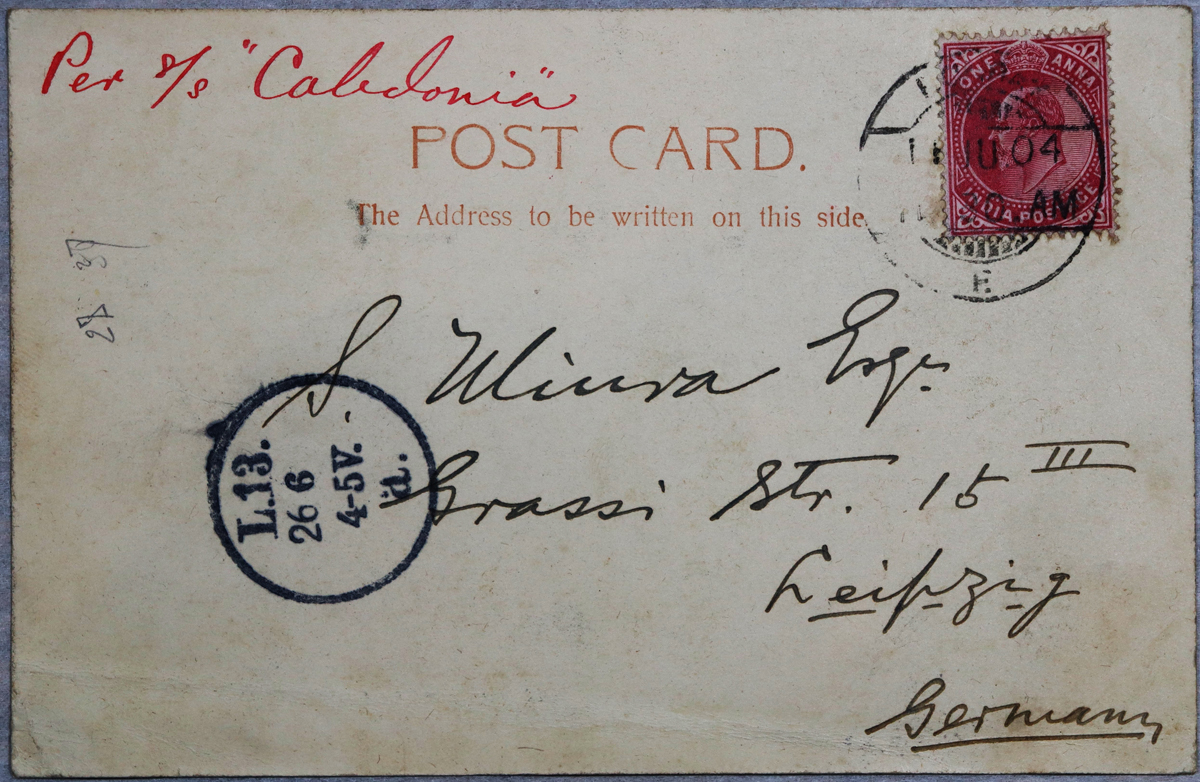 Per s/s "Caledonia"
POST CARD.
The Address to be written on this side.
ONE ANNA
INDIA POSTAGE
JU 04
AM
E
S. Miura Esqr.
Grassi Str. 15 III
Leipzig
Germany
L.13.
26 6
4-5V.
d.